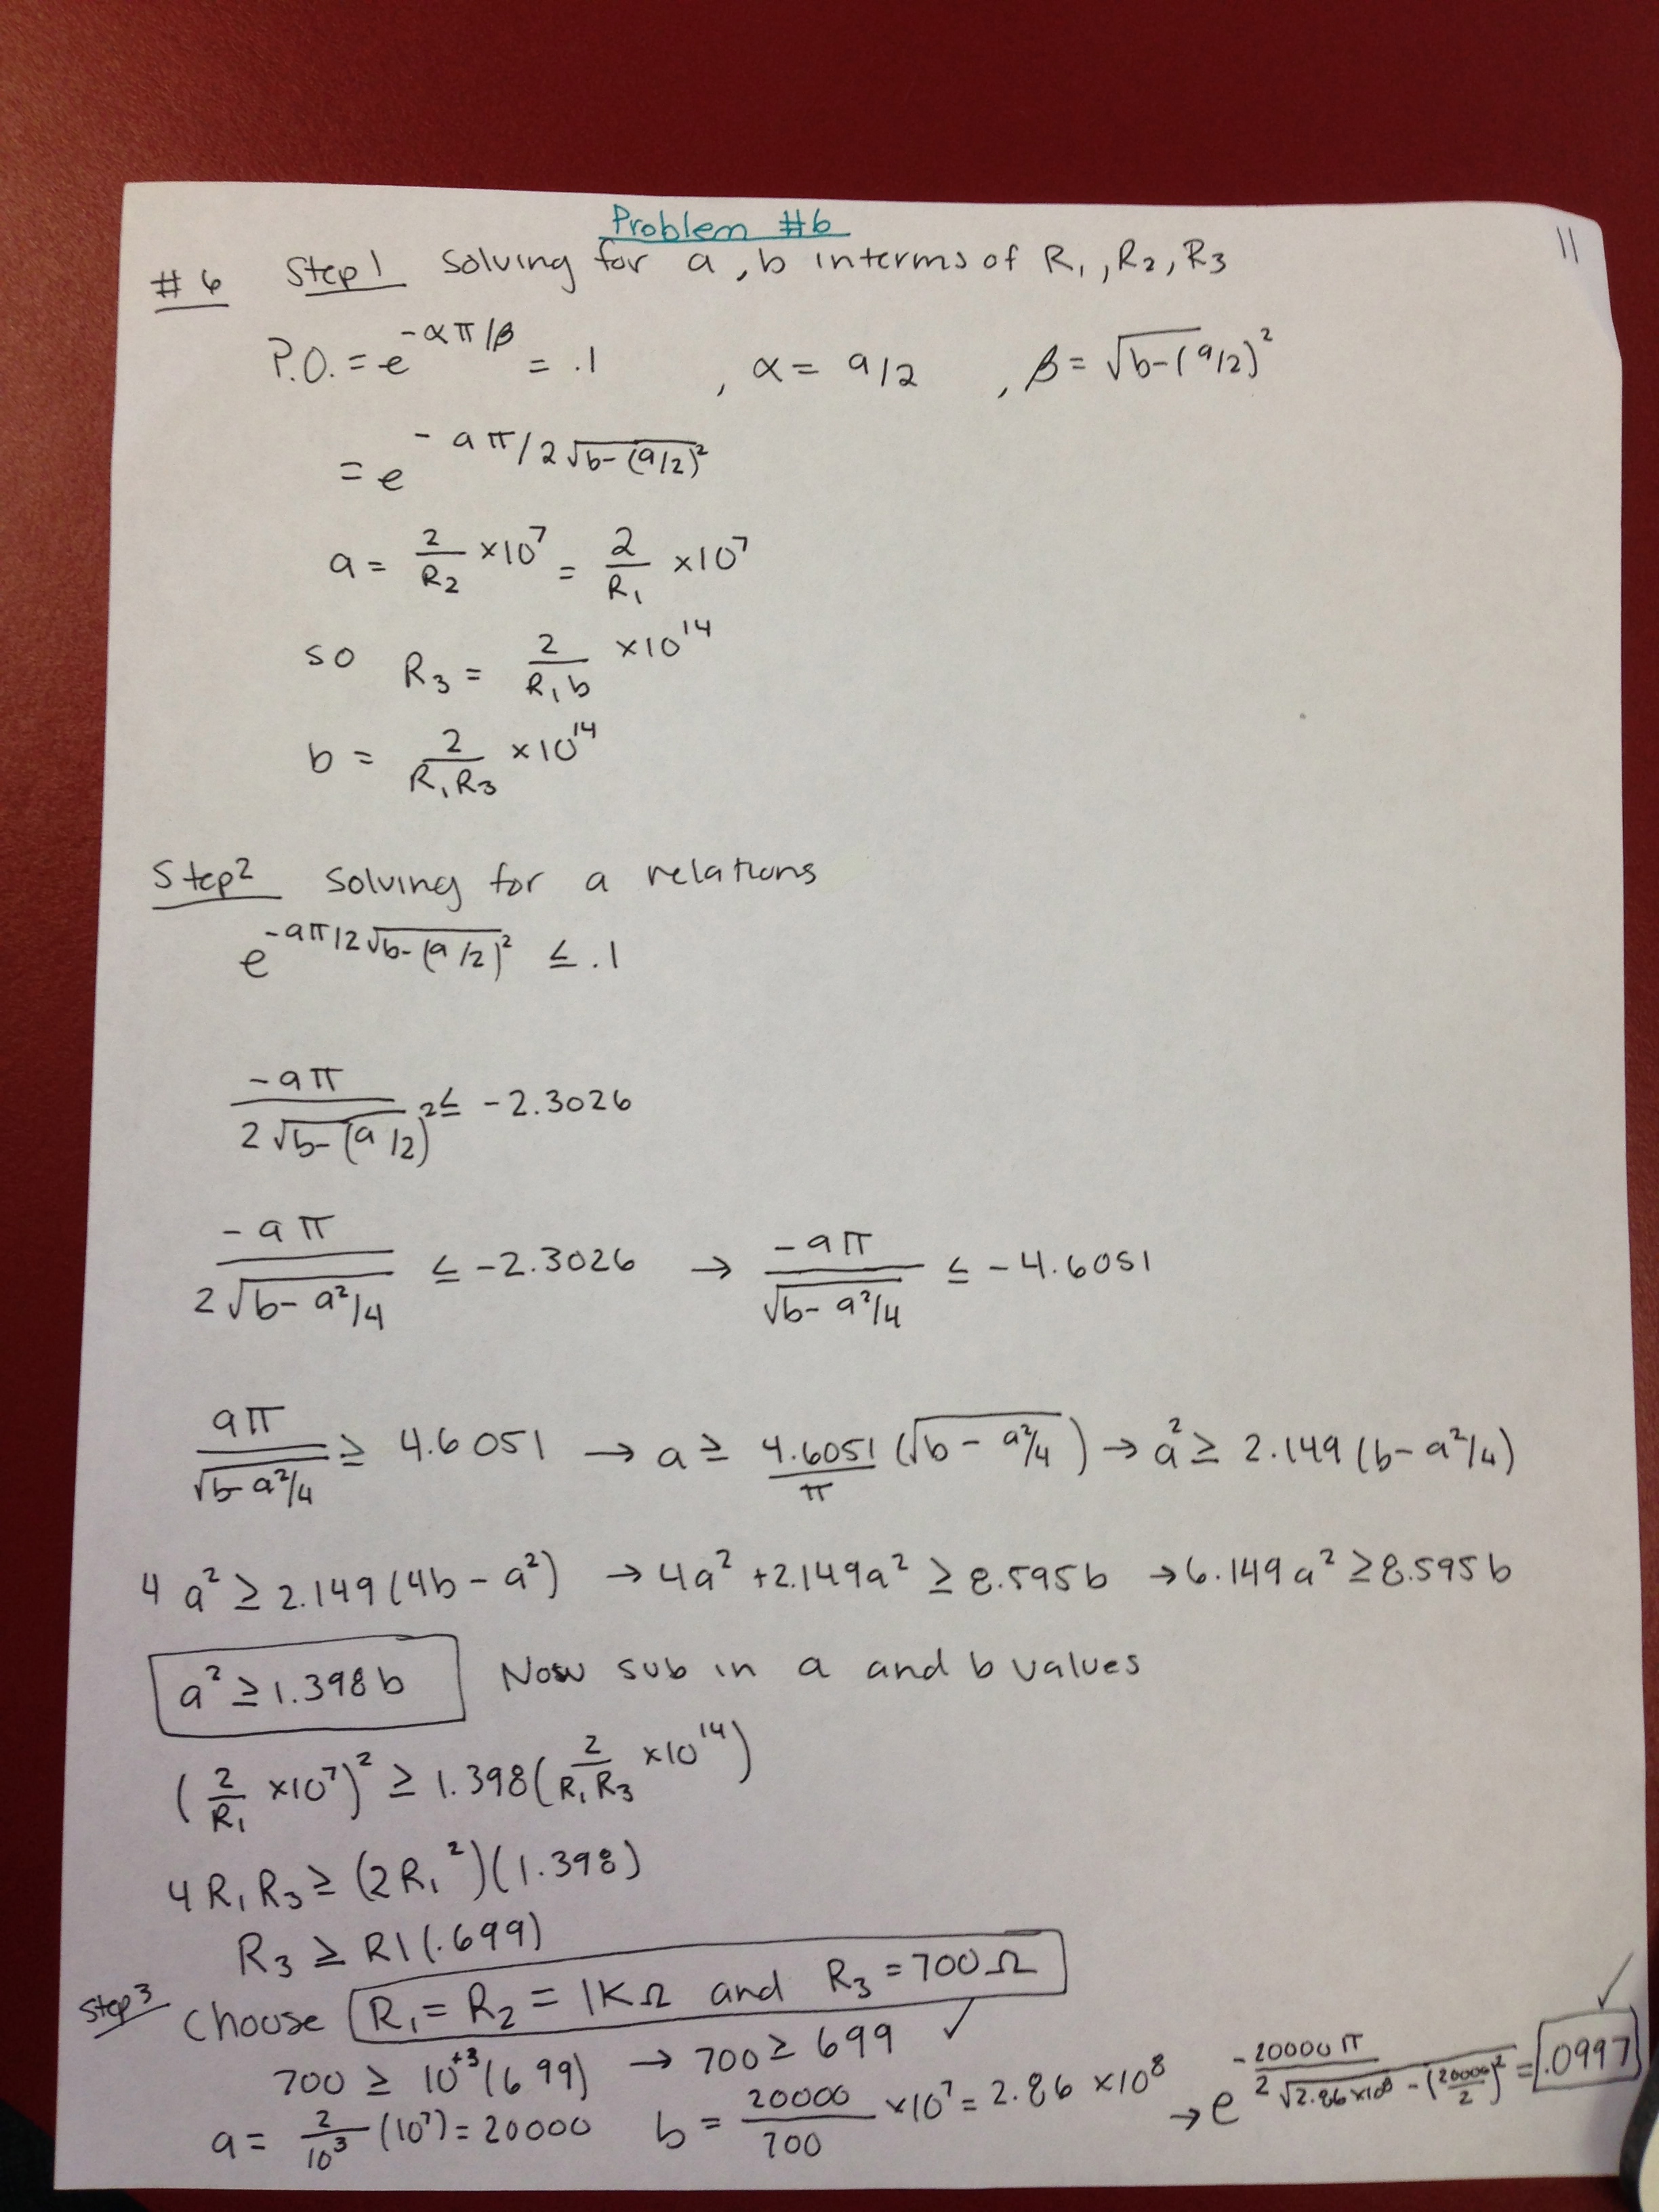 Problem #6
11
#6 Step 1 Solving for a, b in terms of R₁, R₂, R₃
P.O. = e^(-απ/β) = .1 , α = a/2 , β = √(b-(a/2)²)
= e^(- aπ/2√(b-(a/2)²))
a = 2/R₂ ×10⁷ = 2/R₁ ×10⁷
so R₃ = 2/(R₁b) ×10¹⁴
b = 2/(R₁R₃) ×10¹⁴
Step 2 Solving for a relations
e^(-aπ/2√(b-(a/2)²)) ≤ .1
-aπ/(2√(b-(a/2)²)) ≤ -2.3026
-aπ/(2√(b-a²/4)) ≤ -2.3026 → -aπ/√(b-a²/4) ≤ -4.6051
aπ/√(b-a²/4) ≥ 4.6051 → a ≥ 4.6051/π (√(b-a²/4)) → a² ≥ 2.149(b-a²/4)
4a² ≥ 2.149(4b-a²) → 4a² +2.149a² ≥ 8.595b → 6.149a² ≥ 8.595b
a² ≥ 1.398b Now sub in a and b values
(2/R₁ ×10⁷)² ≥ 1.398(2/(R₁R₃) ×10¹⁴)
4R₁R₃ ≥ (2R₁²)(1.398)
R₃ ≥ R1(.699)
Step 3 Choose R₁ = R₂ = 1KΩ and R₃ = 700Ω
700 ≥ 10⁺³(699) → 700 ≥ 699 ✓
a = 2/10³ (10⁷) = 20000 b = 20000/700 ×10⁷ = 2.86 ×10⁸ → e^(-20000π/(2√(2.86×10⁸ - (20000/2)²))) = .0997 ✓